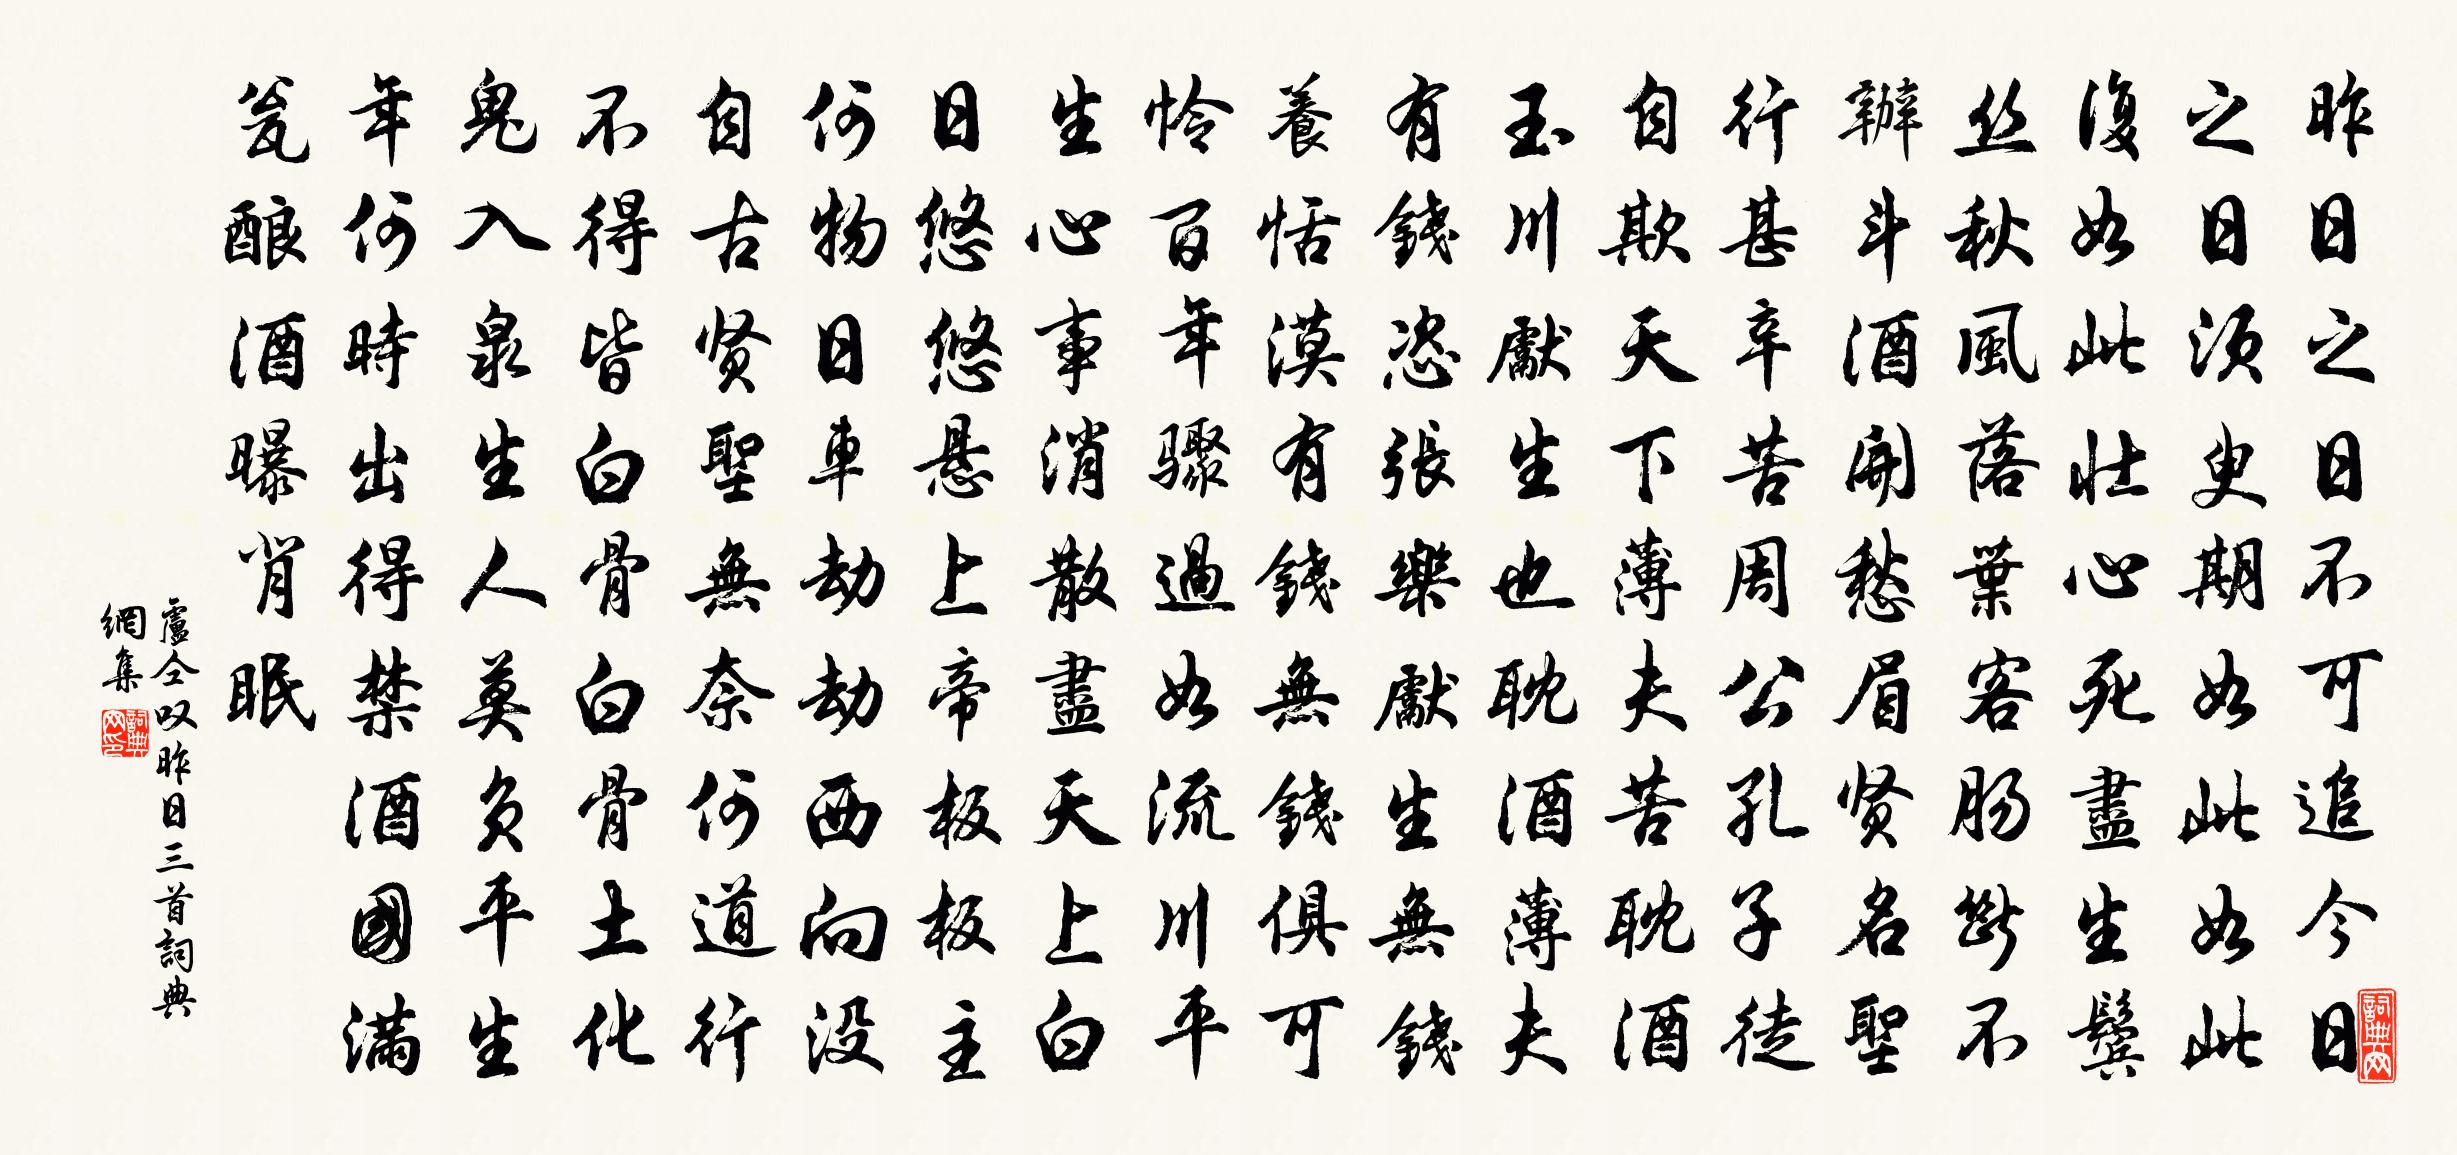 昨日之日不可追今日
之日須臾期如此如此
復如此壯心死盡生鬢
丝秋風落葉客肠斷不
辦斗酒開愁眉贤名聖
行甚辛苦周公孔子徒
自欺天下薄夫苦耽酒
玉川獻生也耽酒薄夫
有錢恣張樂獻生無錢
養恬漠有錢無錢俱可
怜百年驟過如流川平
生心事消散盡天上白
日悠悠悬上帝板板主
何物日車劫劫西向没
自古贤聖無奈何道行
不得皆白骨白骨土化
鬼入泉生人莫負平生
年何時出得禁酒國滿
瓮酿酒曝背眠
盧仝叹昨日三首詞典
網集
詞典网印
詞典网